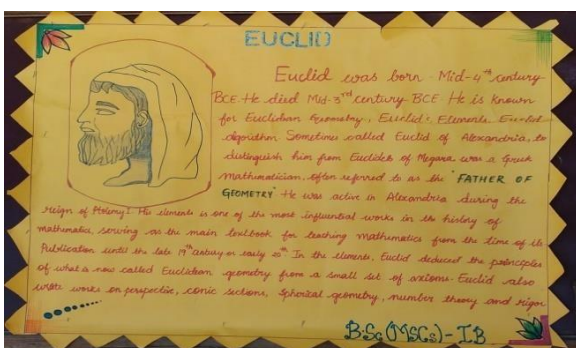 EUCLID
Euclid was born Mid-4th century
BCE. He died Mid-3rd century BCE He is known
for Euclidean Geometry, Euclid's Elements,
algorithm Sometimes called Euclid of Alexandria, to
distinguish him from Euclides of Megara was a Greek
mathematician, often referred to as the "FATHER OF
GEOMETRY" He was active in Alexandria during the
reign of Ptolemy I. His elements is one of the most influential works in the history of
mathematics, serving as the main textbook for teaching mathematics from the time of its
Publication until the late 19th century or early 20th. In the elements, Euclid deduced the principles
of what is now called Euclidean geometry from a small set of axioms. Euclid also
wrote works on perspective, conic sections, Spherical geometry, number theory and rigor
B.Sc(MSCs)-IB